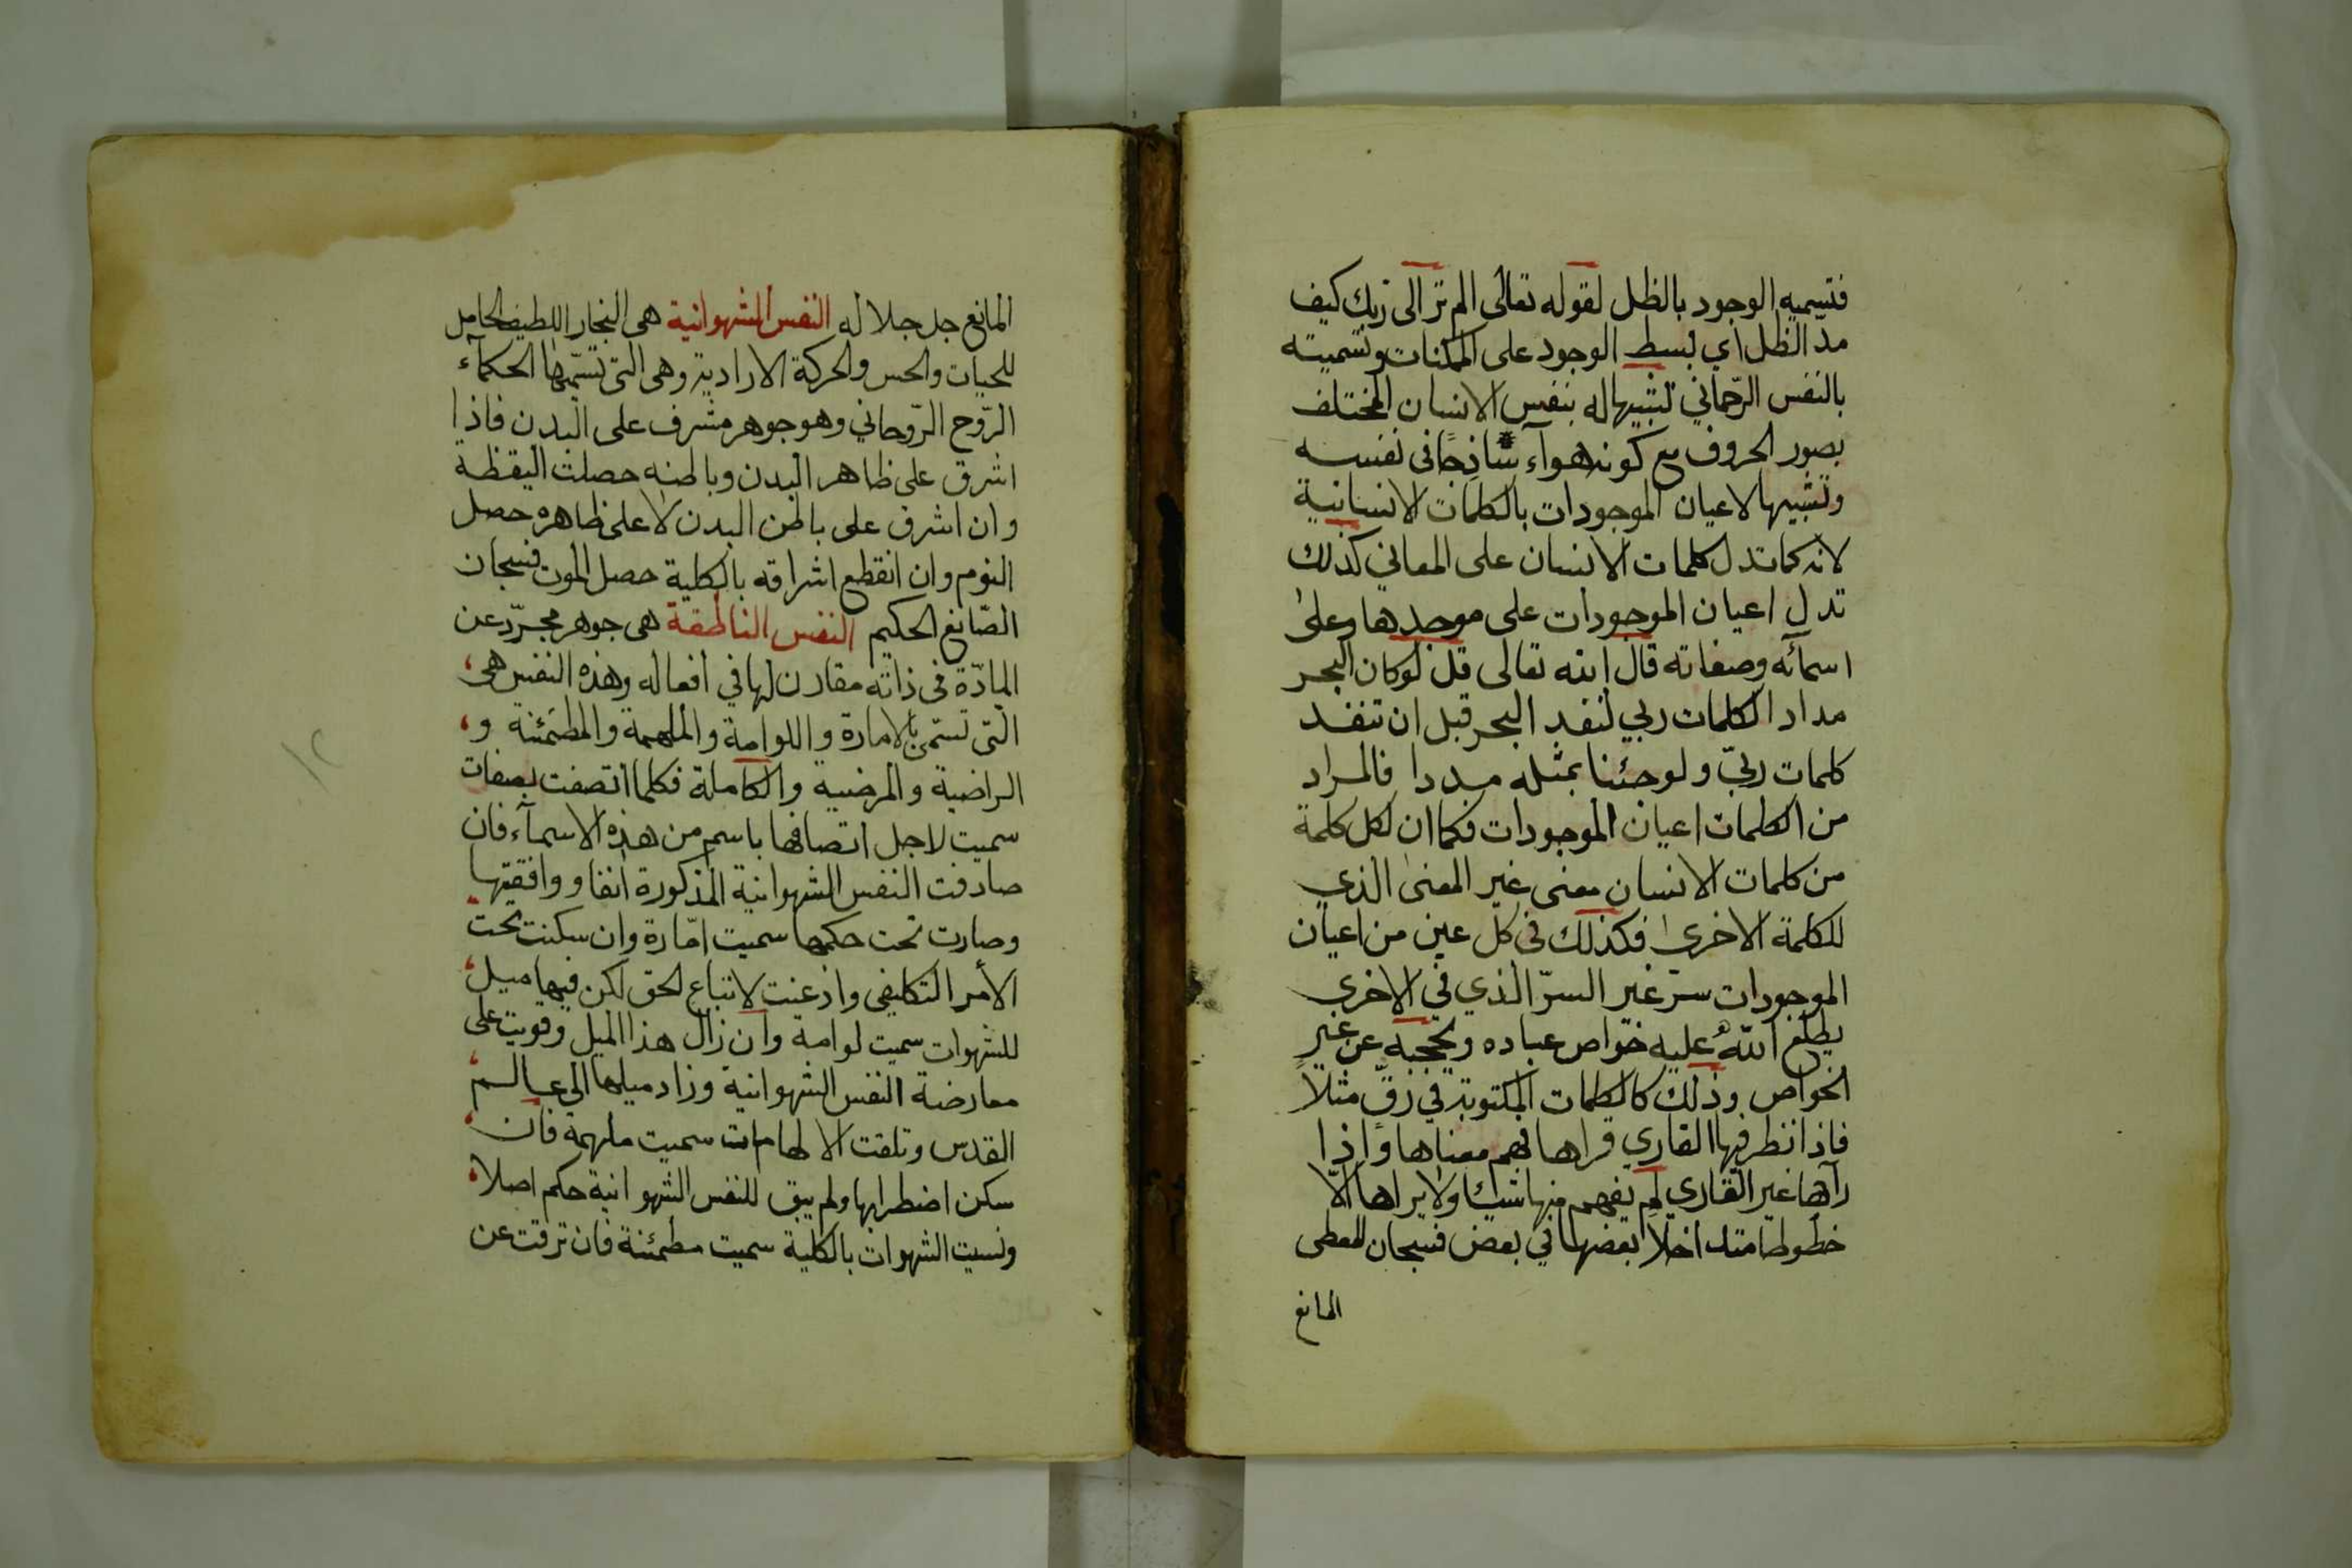 فتسميه الوجود بالظل لقوله تعالى الم تر الى ربك كيف
مد الظل اي بسط الوجود على الممكنات وتسميته
بالنفس الرّحماني تشبيها له بنفس الانسان المختلف
بصور الحروف مع كونه هوآء ساذجًا في نفسه
وتشبيها لاعيان الموجودات بالكلمات الانسانية
لانه كما تدل كلمات الانسان على المعاني كذلك
تدل اعيان الموجودات على موجدها وعلى
اسمآئه وصفاته قال الله تعالى قل لو كان البحر
مدادا لكلمات ربي لنفد البحر قبل ان تنفد
كلمات ربيّ ولو جئنا بمثله مددا فالمراد
من الكلمات اعيان الموجودات فكما ان لكل كلمة
من كلمات الانسان معنى غير المعنى الذي
للكلمة الاخرى فكذلك في كل عين من اعيان
الموجودات سرّ غير السرّ الذي في الاخرى
يطلع اللّٰه عليه خواص عباده ويحجبه عن غير
الخواص وذلك كالكلمات المكتوبة في رقّ مثلاً
فاذا نظر فيها القاري قراها فهم معناها واذا
رآها غير القاري لم يفهم منها شيئا ولا يراها الّا
خطوطا متداخلا بعضها في بعض فسبحان المعطى
المانع
المانع جل جلاله النفس الشهوانية هي البخار اللطيف الحامل
للحيات والحس والحركة الارادية وهي التي تسّميها الحكمآء
الرّوح الرّوحاني وهو جوهر مشرف على البدن فاذا
اشرق على ظاهر البدن وباطنه حصلت اليقظة
وان اشرف على باطن البدن لا على ظاهره حصل
النوم وان انقطع اشراقه بالكلية حصل الموت فسبحان
الصّانع الحكيم النفس الناطقة هي جوهر مجرّد عن
المادّة في ذاته مقارن لها في افعاله وهذه النفس هي
التي تسمى بالامارة واللوامة والملهمة والمطمئنه و
الراضية والمرضيه والكاملة فكلما اتصفت بصفات
سميت لاجل اتصافها باسم من هذه الاسمآء فان
صادفت النفس الشهوانية المذكورة انفا ووافقتها
وصارت تحت حكمها سميت امّارة وان سكنت تحت
الأمر التكليفي واذعنت لاتباع الحق لكن فيها ميل
للشهوات سميت لوامة وان زال هذا الميل وقويت على
معارضة النفس الشهوانية وزاد ميلها الى عالم
القدس وتلقت الالهامات سميت ملهمة فان
سكن اضطرابها ولم يبق للنفس الشهوانية حكم اصلا
ونسيت الشهوات بالكلية سميت مطمئنة فان ترقت عن
١٢